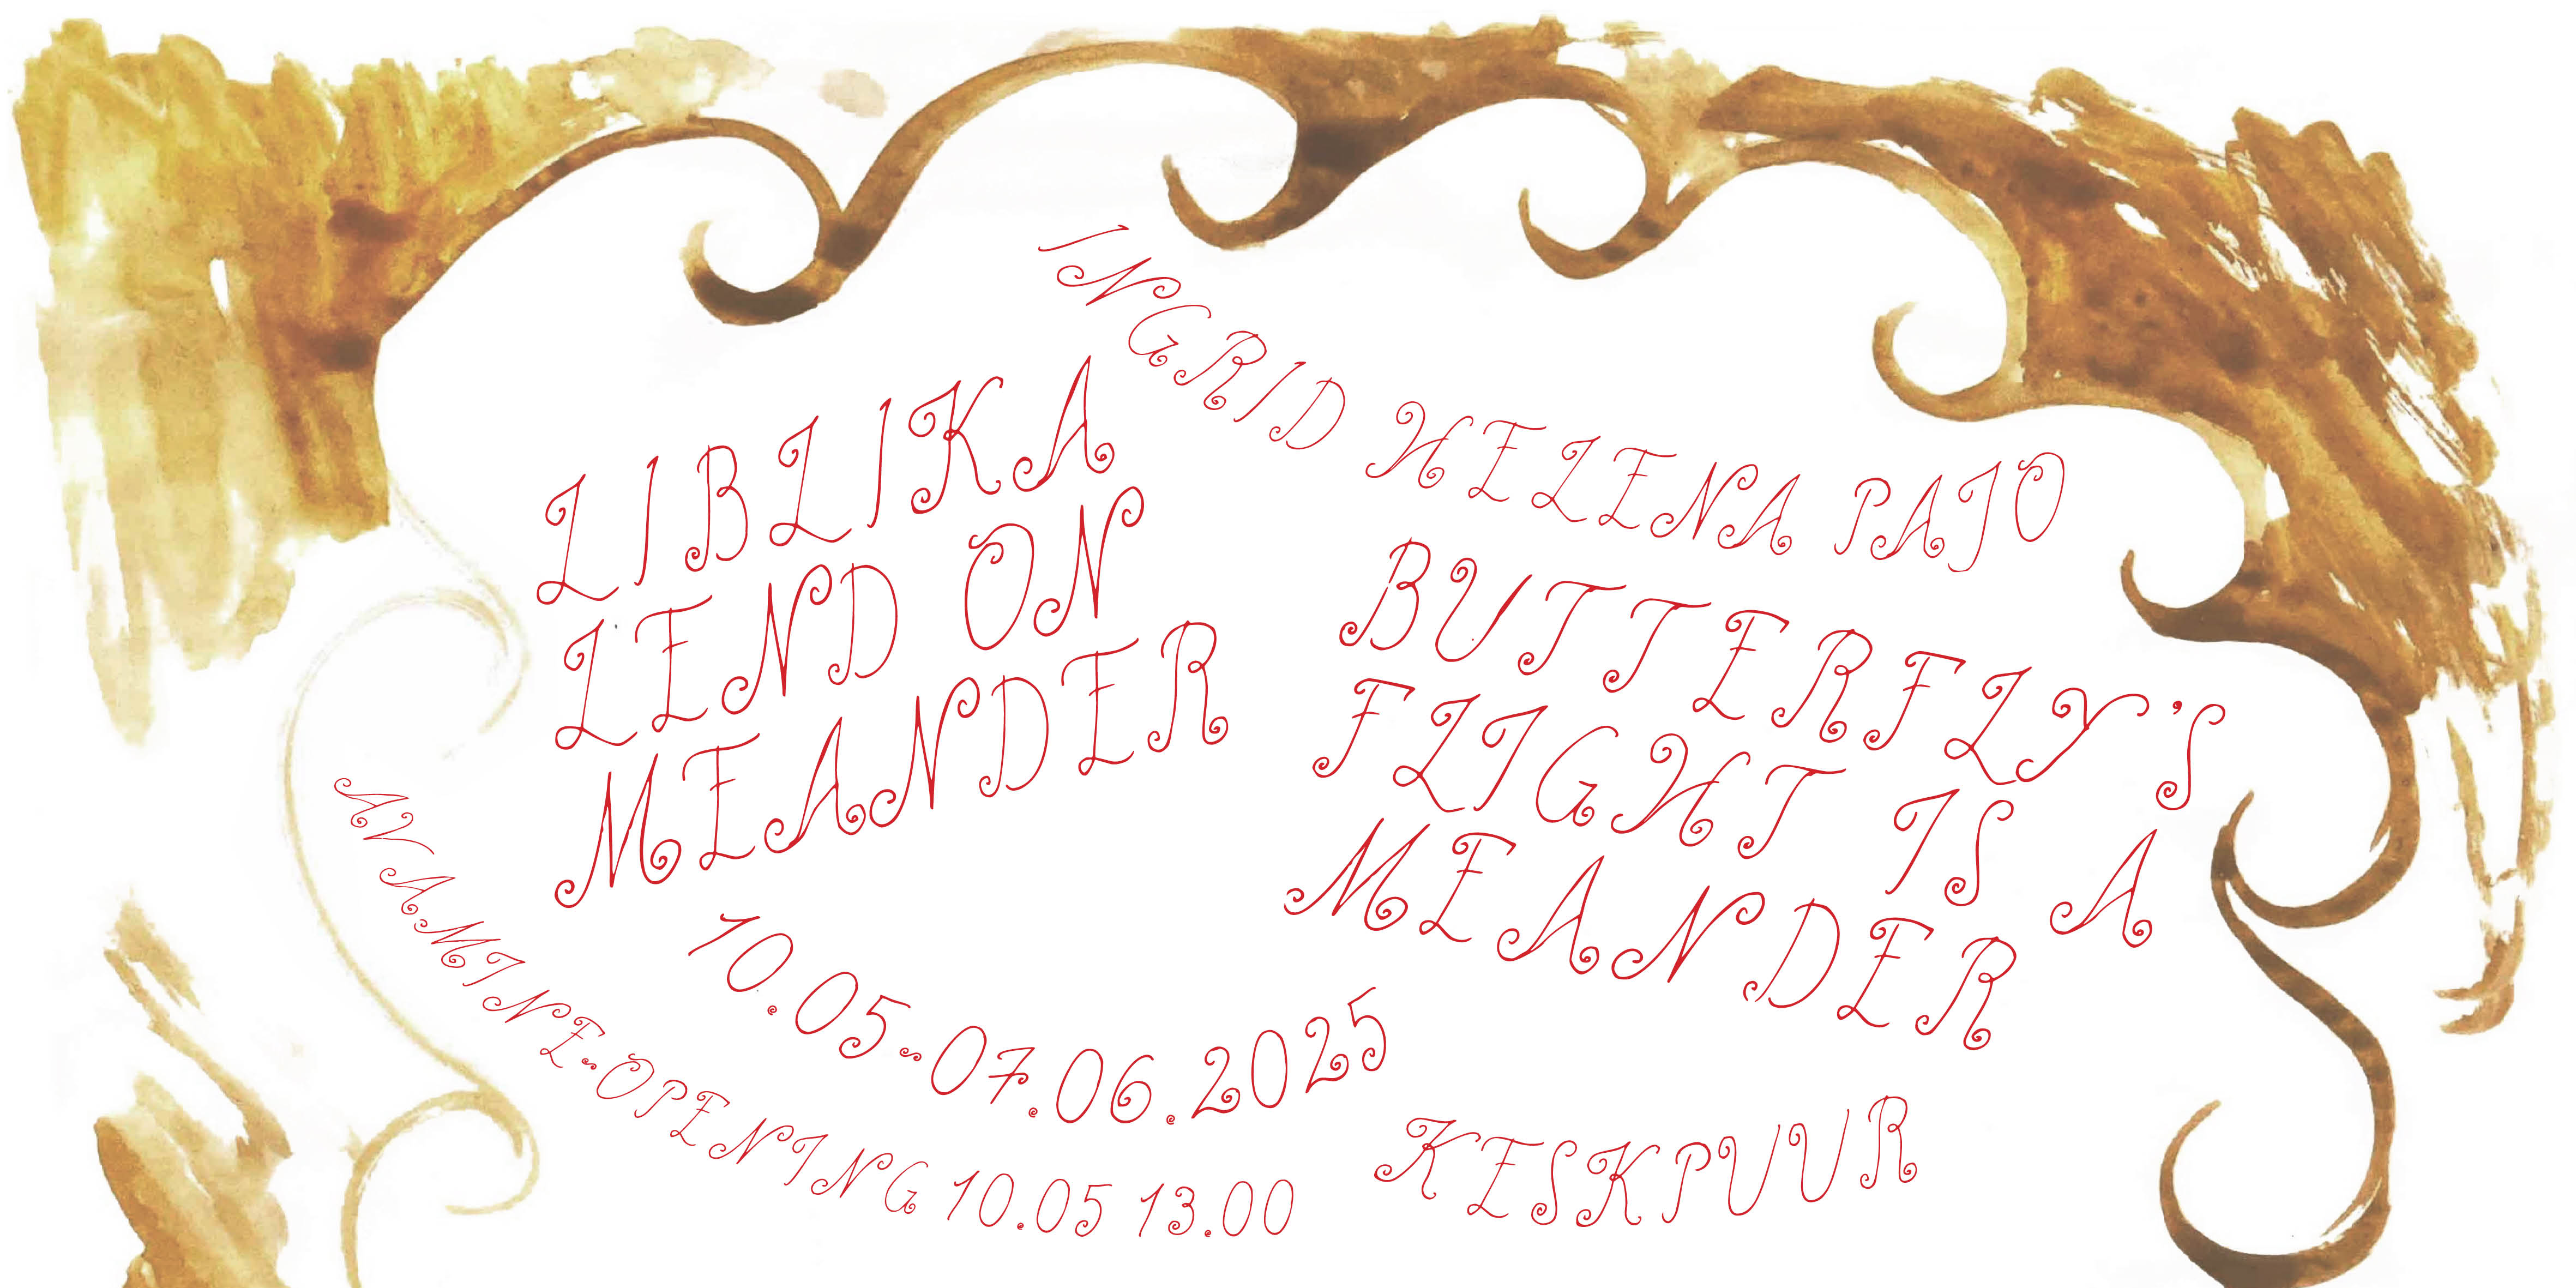 INGRID HELENA PAJO
LIBLIKA
LEND ON
MEANDER
BUTTERFLY'S
FLIGHT IS A
MEANDER
10.05-07.06.2025
AVAMINE-OPENING 10.05 13.00
KESKPUUR